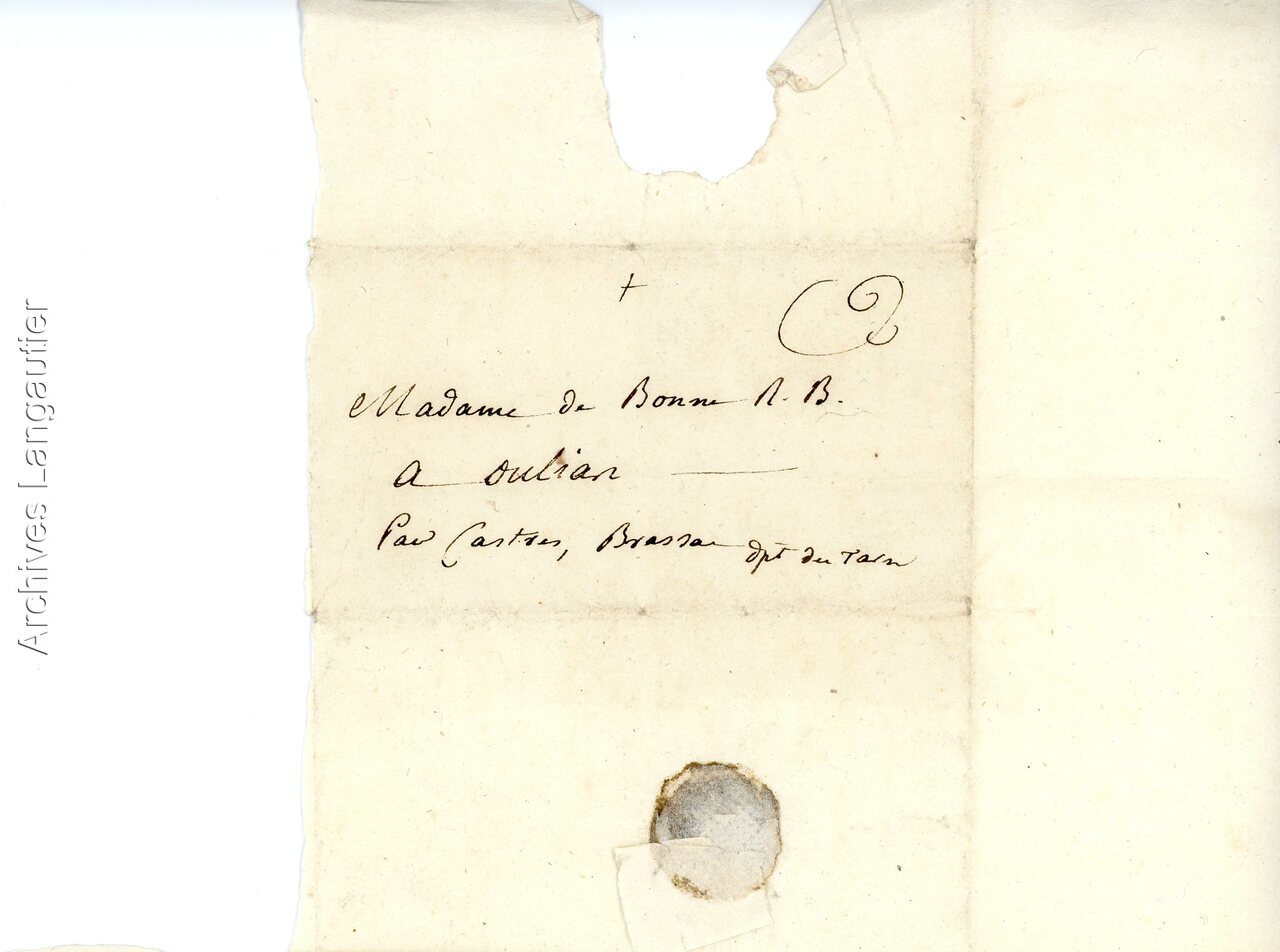 Archives Langautier
+
Madame de Bonne R. B.
A oulian
Par Castres, Brassac dpt du Tarn